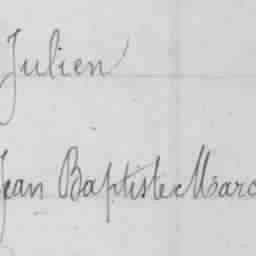 Julien
Jean Baptiste Marc